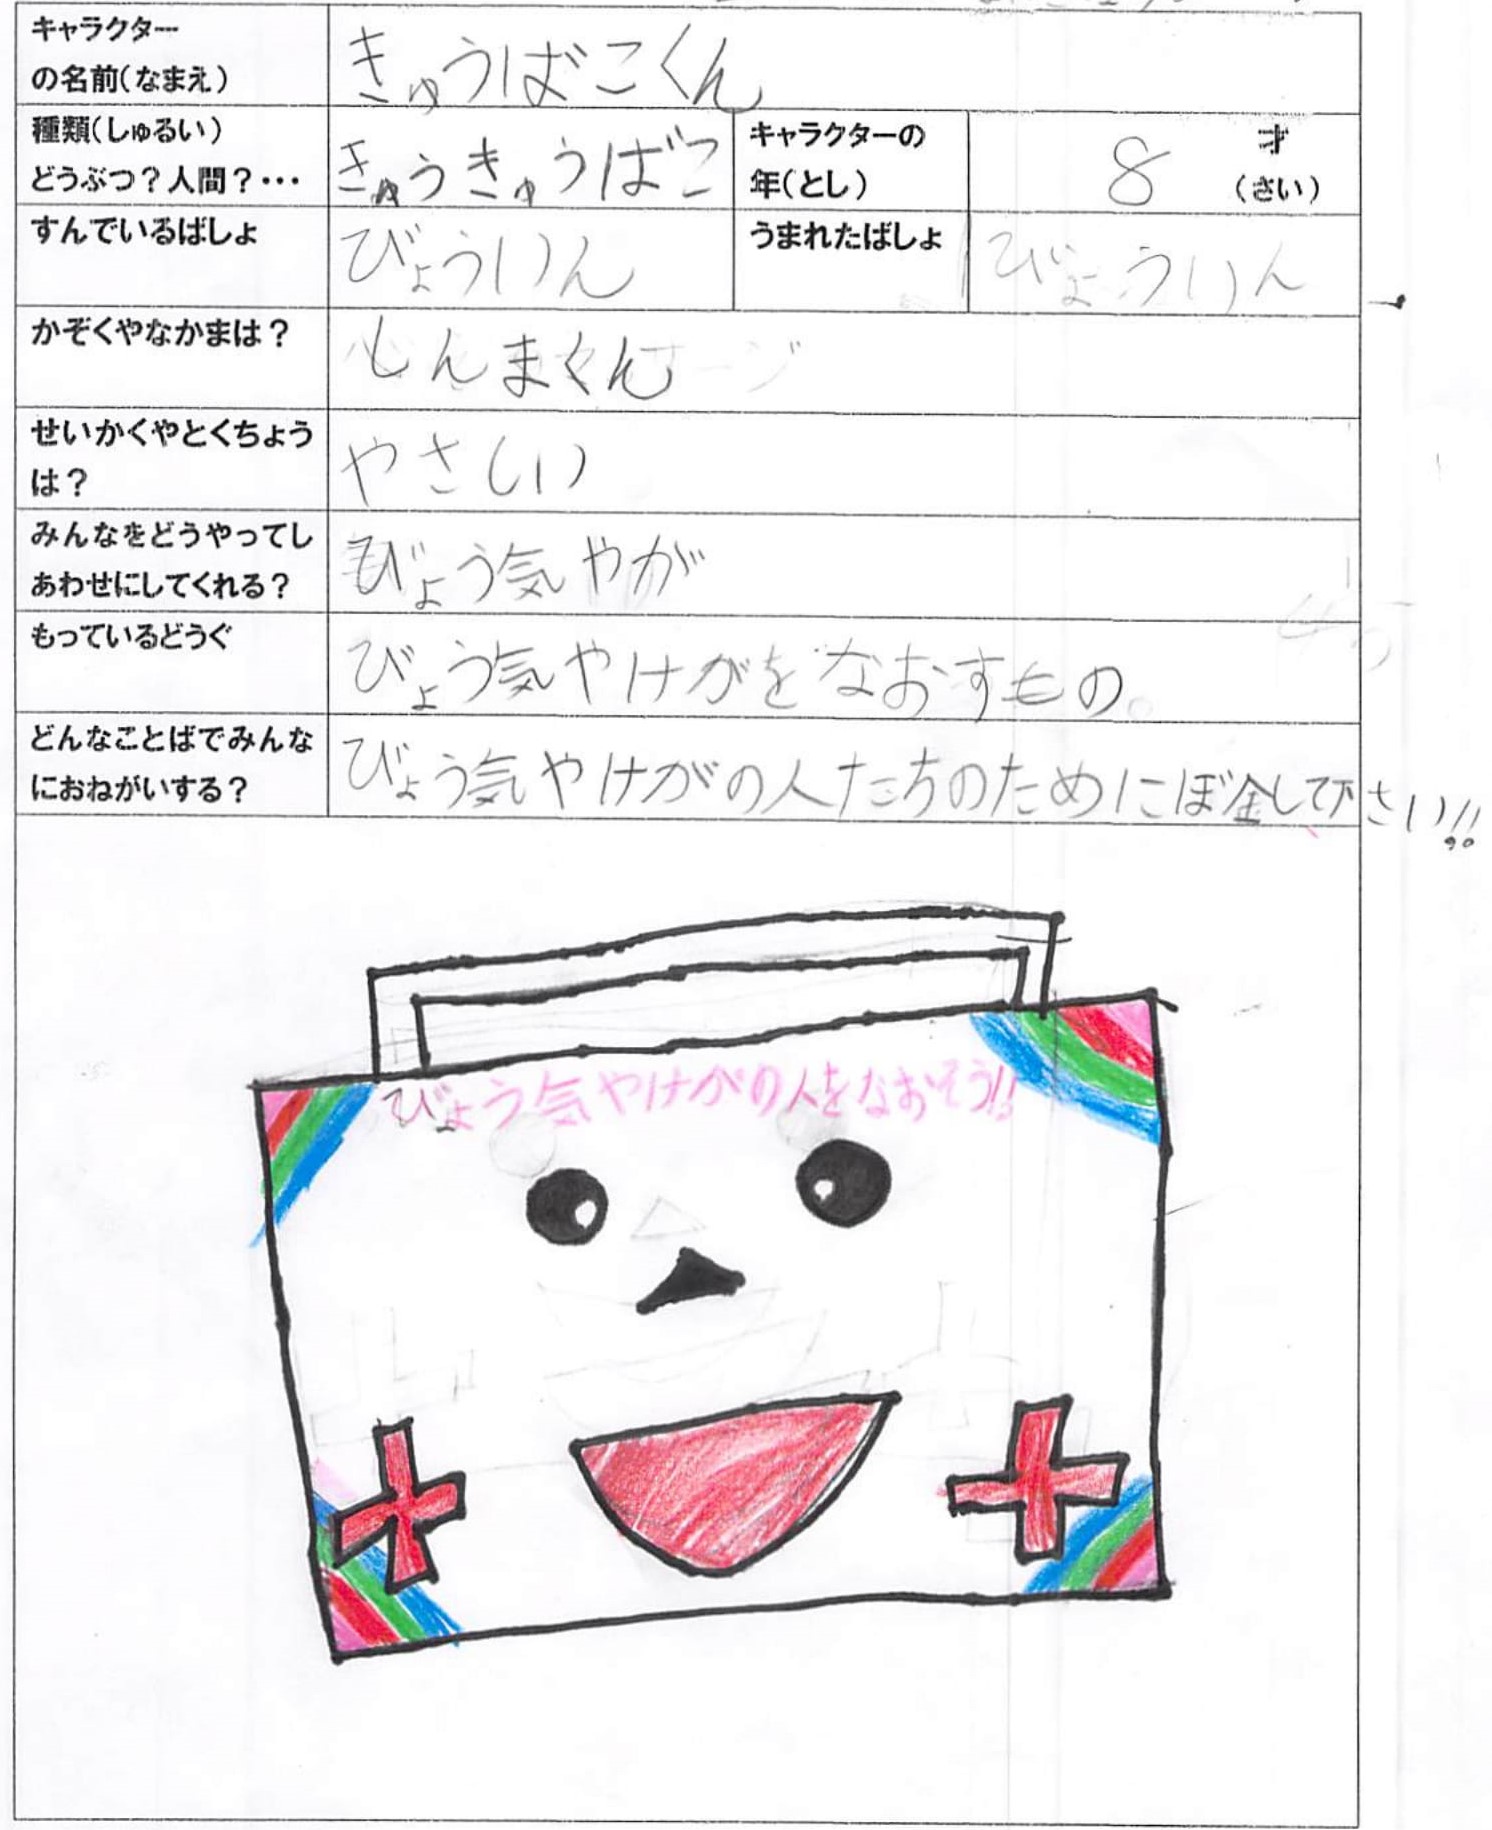 キャラクター
の名前(なまえ)
きゅうばこくん
種類(しゅるい)
どうぶつ?人間?・・・
きゅうきゅうばこ
キャラクターの
年(とし)
8
才
(さい)
すんでいるばしょ
びょういん
うまれたばしょ
びょういん
かぞくやなかまは?
しんまくん
せいかくやとくちょう
は?
やさしい
みんなをどうやってし
あわせにしてくれる?
びょう気やが
もっているどうぐ
びょう気やけがをなおすもの。
どんなことばでみんな
におねがいする?
びょう気やけがの人たちのためにぼ金して下さい!!
びょう気やけがの人をなおそう!!